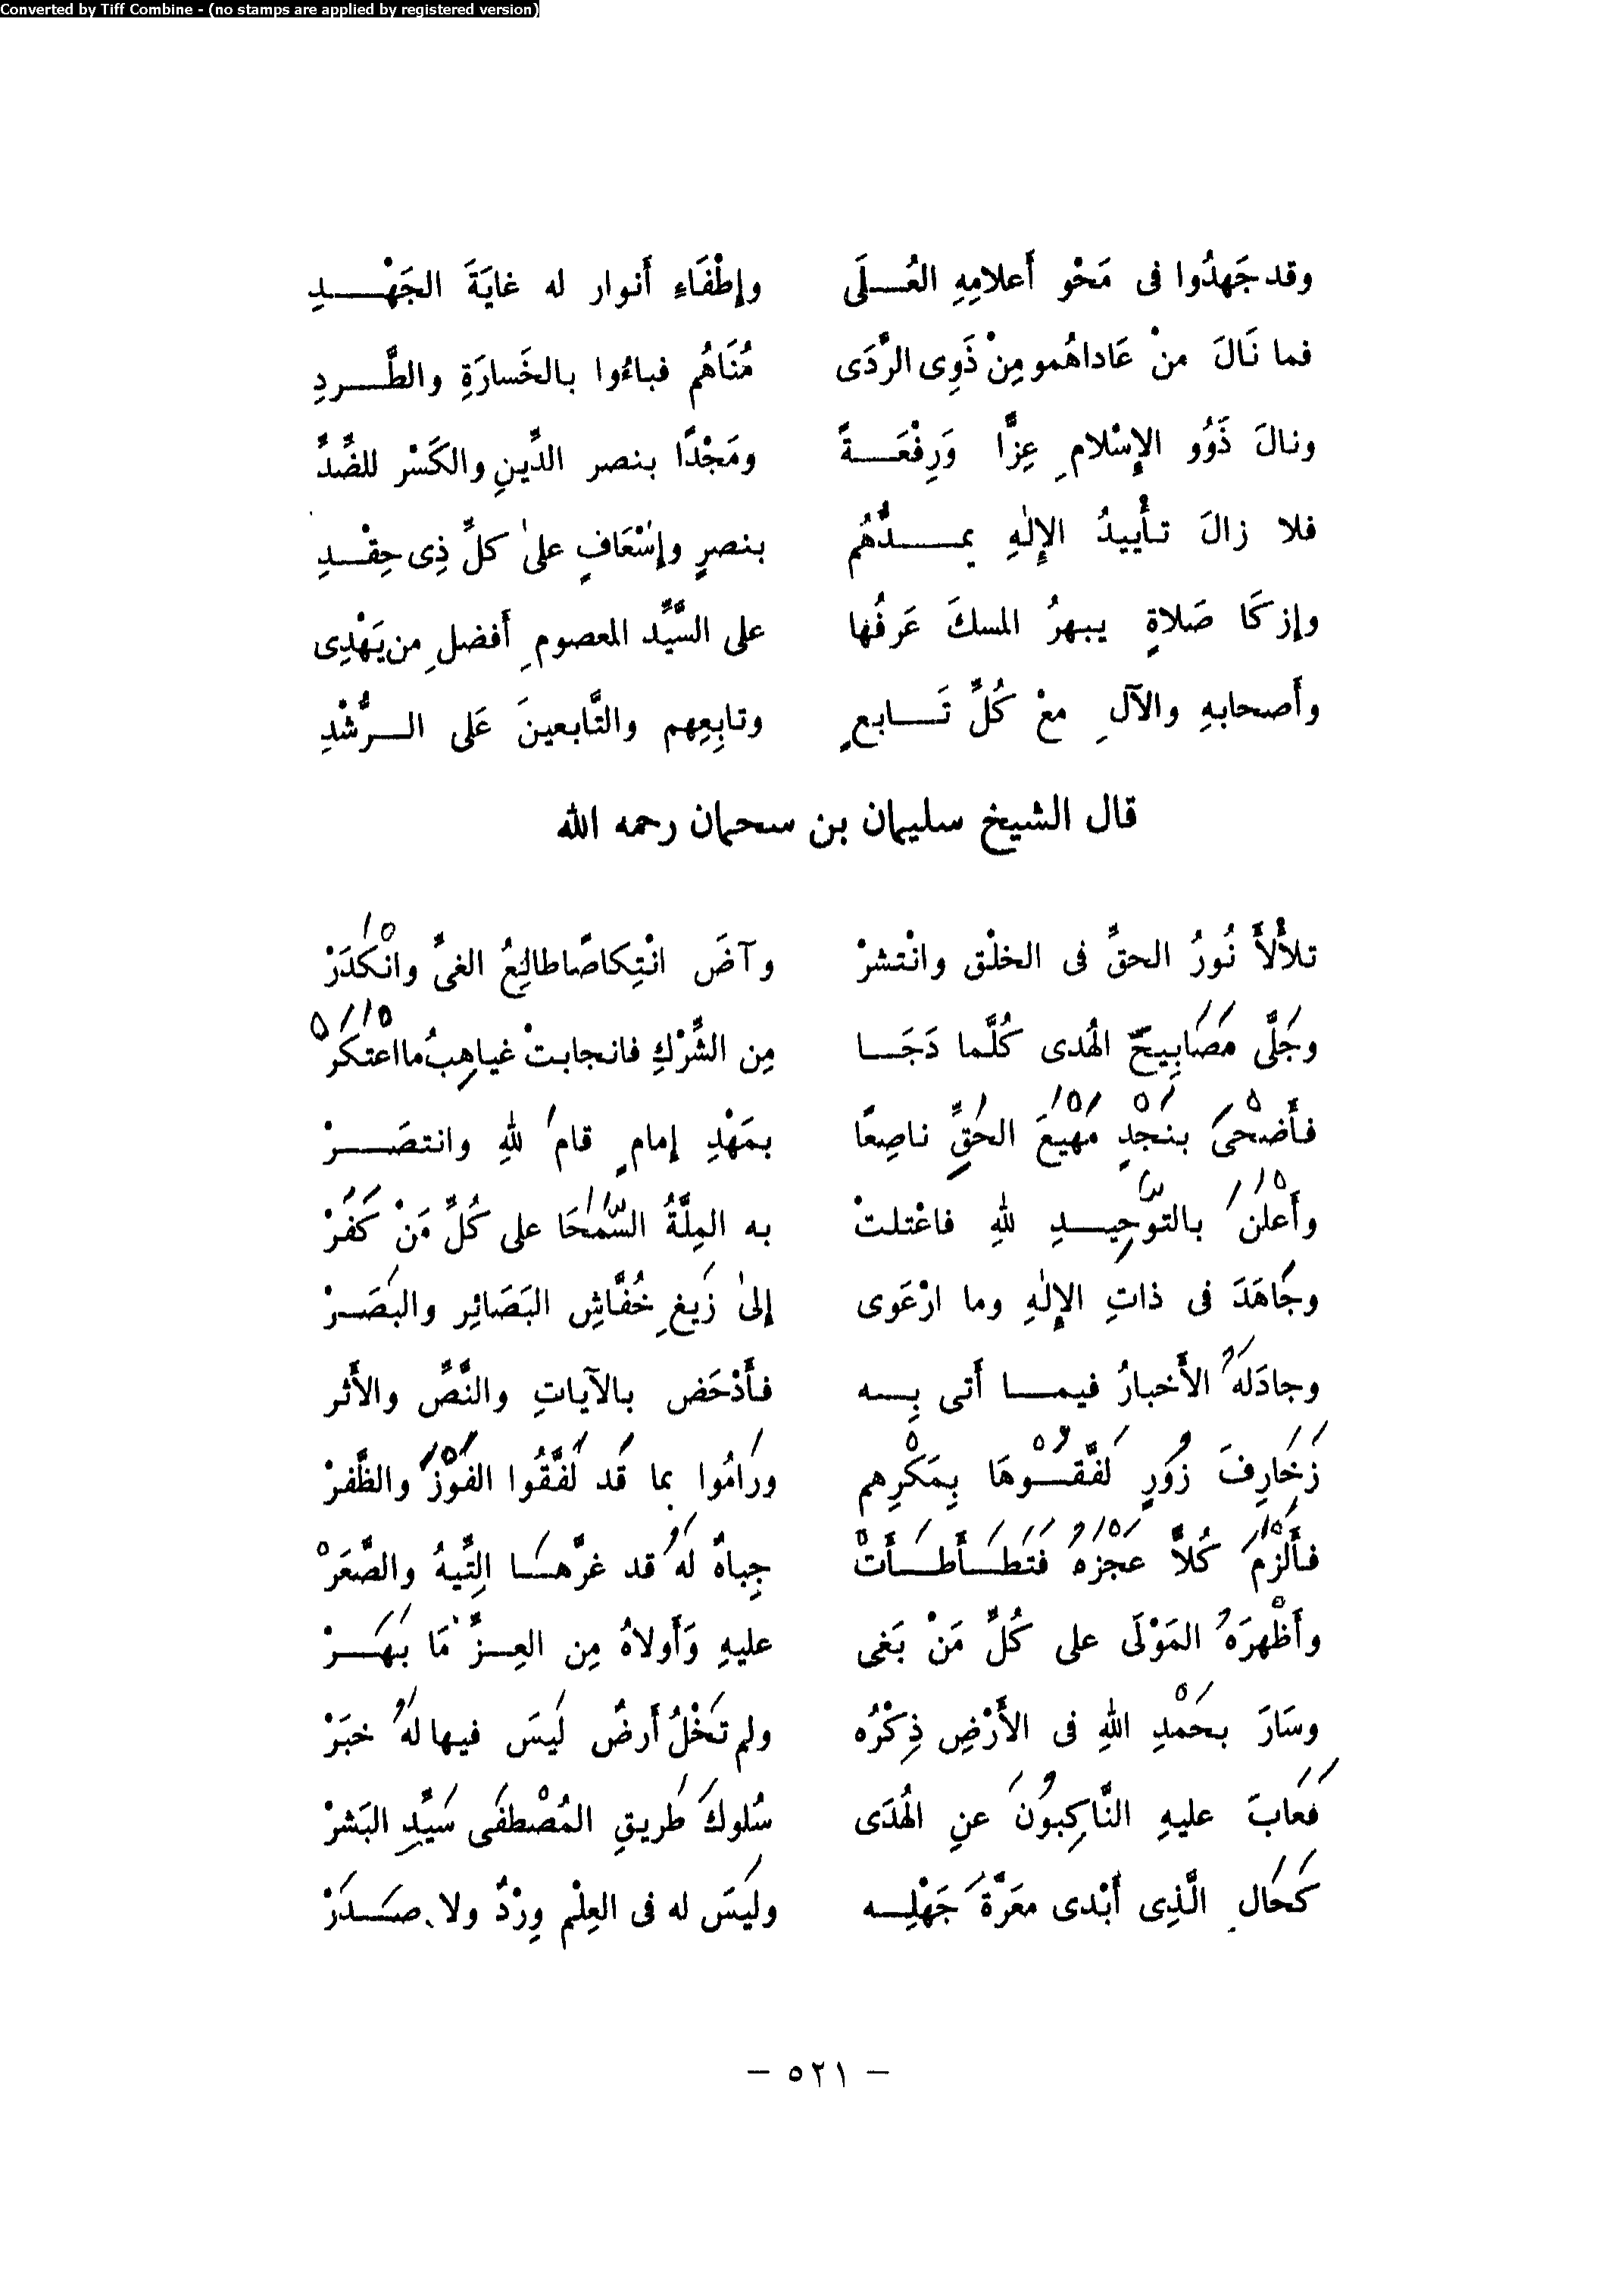 Converted by Tiff Combine - (no stamps are applied by registered version)
وقد جَهدُوا فى مَحْو أَعلامِهِ العُــلَى وإطْفَاءِ أَنوار له غايَةَ الجَهْــدِ
فما نَالَ منْ عَاداهُمو مِنْ ذَوِى الرَّدَى مُنَاهُم فباءُوا بالخَسارَةِ والطَّــردِ
ونالَ ذَوُو الإِسْلامِ عِزًّا وَرِفْعَــةً ومَجْدًا بنصر الدِّينِ والكَسْر للضِّدِّ
فلا زالَ تأْييدُ الإِلٰهِ يمــدُّهُم بنصرٍ وإسْعَافٍ علىٰ كلِّ ذِى حِقْــدِ
وإزكَا صَلاةٍ يبهرُ المسكَ عَرفُها على السَّيِّد المعصومِ أَفضلِ من يَهْدِى
وأَصحابهِ والآلِ معْ كُلِّ تَــابعٍ وتابِعِهم والتَّابعينَ عَلى الــرُّشْدِ
قال الشيخ سليمان بن سحمان رحمه الله
تلأْلأَ نُورُ الحقِّ فى الخلْق وانْتشرْ وآضَ انْتِكاصًا طالِعُ الغىِّ وانْكَدَرْ
وجَلَّى مَصَابِيحَ الهُدى كُلَّما دَجَــا مِن الشِّرْكِ فانجابتْ غياهِبُ ما اعتكرْ
فأَضْحىَ بنَجْدٍ مَهْيَعَ الحَقِّ ناصِعًا بمَهْدِ إمامٍ قامَ للهِ وانتصَــرْ
وأَعْلَنَ بالتوّحِيــدِ للهِ فاعْتلتْ به المِلَّةُ السَّمْحَا على كُلِّ مَنْ كَفَرْ
وجَاهَدَ فى ذاتِ الإِلٰهِ وما ارْعَوى إلىٰ زَيغِ خُفَّاشِ البَصَائِر والبَصَــرْ
وجادَلَهُ الأَخبارُ فيمــا أَتى بِــه فأَدْحَض بالآياتِ والنَّصِّ والأَثر
زَخَارِفَ زُورٍ لَفَّقُــوْهَا بِمَكْرِهم ورَامُوا بما قَد لَفَّقُوا الفَوْزَ والظَّفرْ
فأَلْزَمَ كُلاًّ عَجْزَهُ فَتَطَــأْطَــأَتْ جِباهٌ لَهُ قد غرَّهَــا التِّيهُ والصَّعَرْ
وأَظْهرَهُ المَوْلَى على كُلِّ مَنْ بَغى عليهِ وَأَولاهُ مِن العِــزِّ مَا بَهَــرْ
وسَارَ بحَمْدِ اللهِ فى الأَرْضِ ذِكْرُه ولم تَخْلُ أَرضٌ لَيسَ فيها لَهُ خبَرْ
فَعابَ عليهِ النَّاكِبُونَ عنِ الهُدَى سُلوكَ طَريقِ المُصْطفَى سَيِّدِ البَشرْ
كَحَالِ الَّذِى أَبْدى معَرَّةَ جَهْلِــه ولَيسَ له فى العِلْم وِرْدٌ ولا صَــدَرْ
— ٥٢١ —